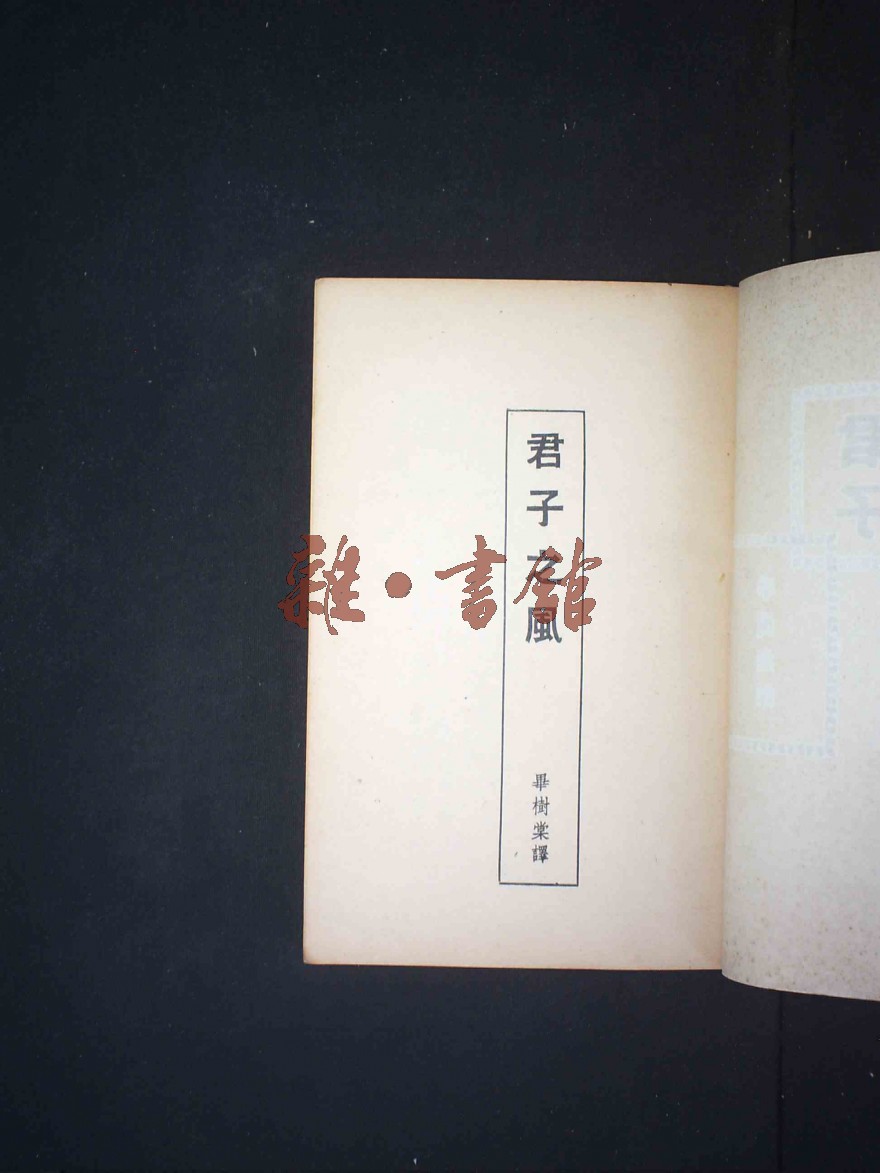 君子之風
畢樹棠譯
雜·書館
君子